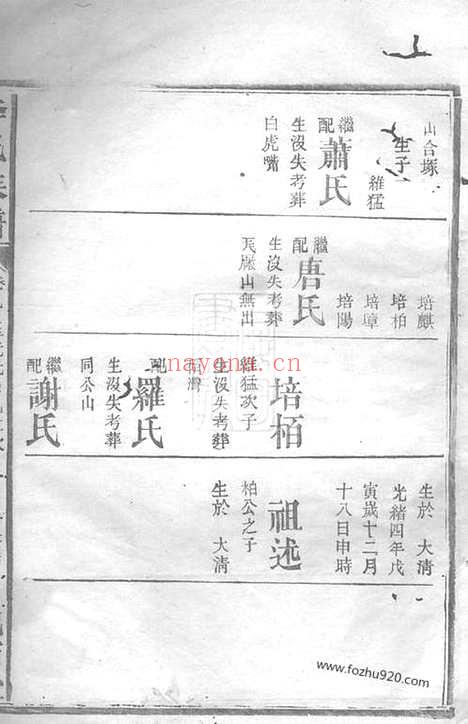 山合塚
生子一
維猛
繼配蕭氏
生沒失考葬
白虎嘯
培麒
培柏
培璋
培陽
繼配唐氏
生沒失考葬
山無出
培栢
維猛次子
生沒失考葬
配羅氏
生沒失考葬
同公山
繼配謝氏
生於 大清
光緒四年戊
寅歲十二月
十八日申時
祖述
柏公之子
生於 大清
nayona.cn
www.fozhu920.com